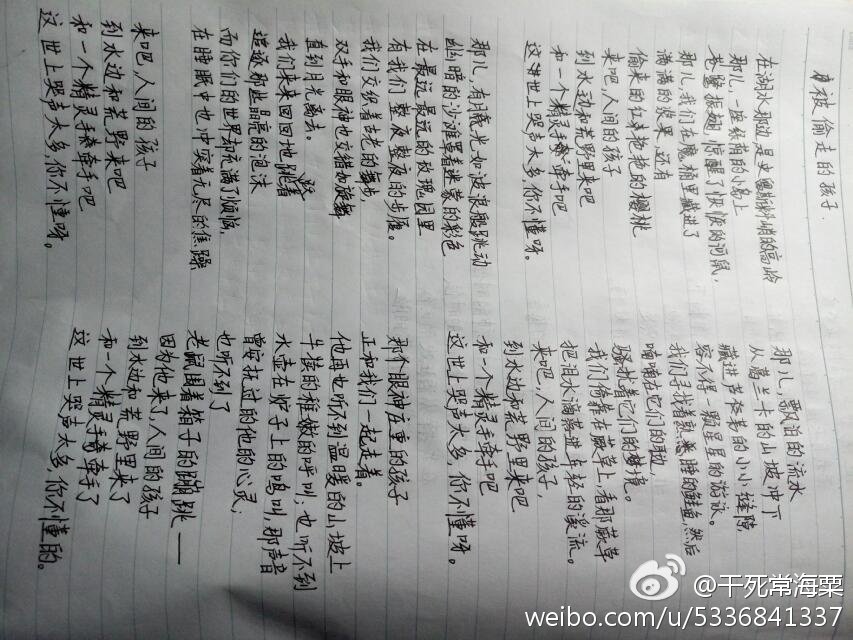 被偷走的孩子.
在湖水那边是史思斯料峭的高岭
那儿,一座绿荫的小岛上
苍鹭振翅,惊醒了怏怏的河鼠,
那儿,我们在魔桶里藏进了
满满的浆果,还有
偷来的红艳艳的樱桃
来吧,人间的孩子
到水边和荒野里来吧
和一个精灵手牵手吧
这世上哭声太多,你不懂呀。
那儿,有月光如波浪般跳动
幽暗的沙滩罩着迷蒙的粉色
在最远最远的玫瑰园里
有我们整夜整夜的步履。
我们交织着古老的舞步,
双手和眼神也交错如旋舞
直到月光离去。
我们来来回回地跳着
追逐那些晶亮的泡沫
而你们的世界却充满了烦恼
在睡眠中也冲突着无尽的焦躁
来吧,人间的孩子
到水边和荒野来吧
和一个精灵手牵手吧
这世上哭声太多,你不懂呀。
那儿,飘泊的流水
从葛兰卡的山坡冲下
藏进芦苇卷的小小缝隙,
容不得一颗星星的游泳。
我们寻找着熟睡的鲑鱼,然后
喃喃在它们的耳边
骚扰着它们的梦境。
我们偷靠在蕨草上,看那蕨草
把泪水滴落进年轻的溪流。
来吧,人间的孩子,
到水边和荒野里来吧
和一个精灵手牵手吧
这世上哭声太多,你不懂呀。
那个眼神庄重的孩子
正和我们一起走着。
他再也听不到温暖的山坡上
牛犊的稚嫩的呼叫;也听不到
水壶在炉子上的鸣叫,那声音
曾安抚过的他的心灵;
也听不到了
老鼠围着箱子的蹦跳——
因为他来了,人间的孩子
到水边和荒野里来了
和一个精灵手牵手了
这世上哭声太多,你不懂的。
@干死常海粟
weibo.com/u/5336841337